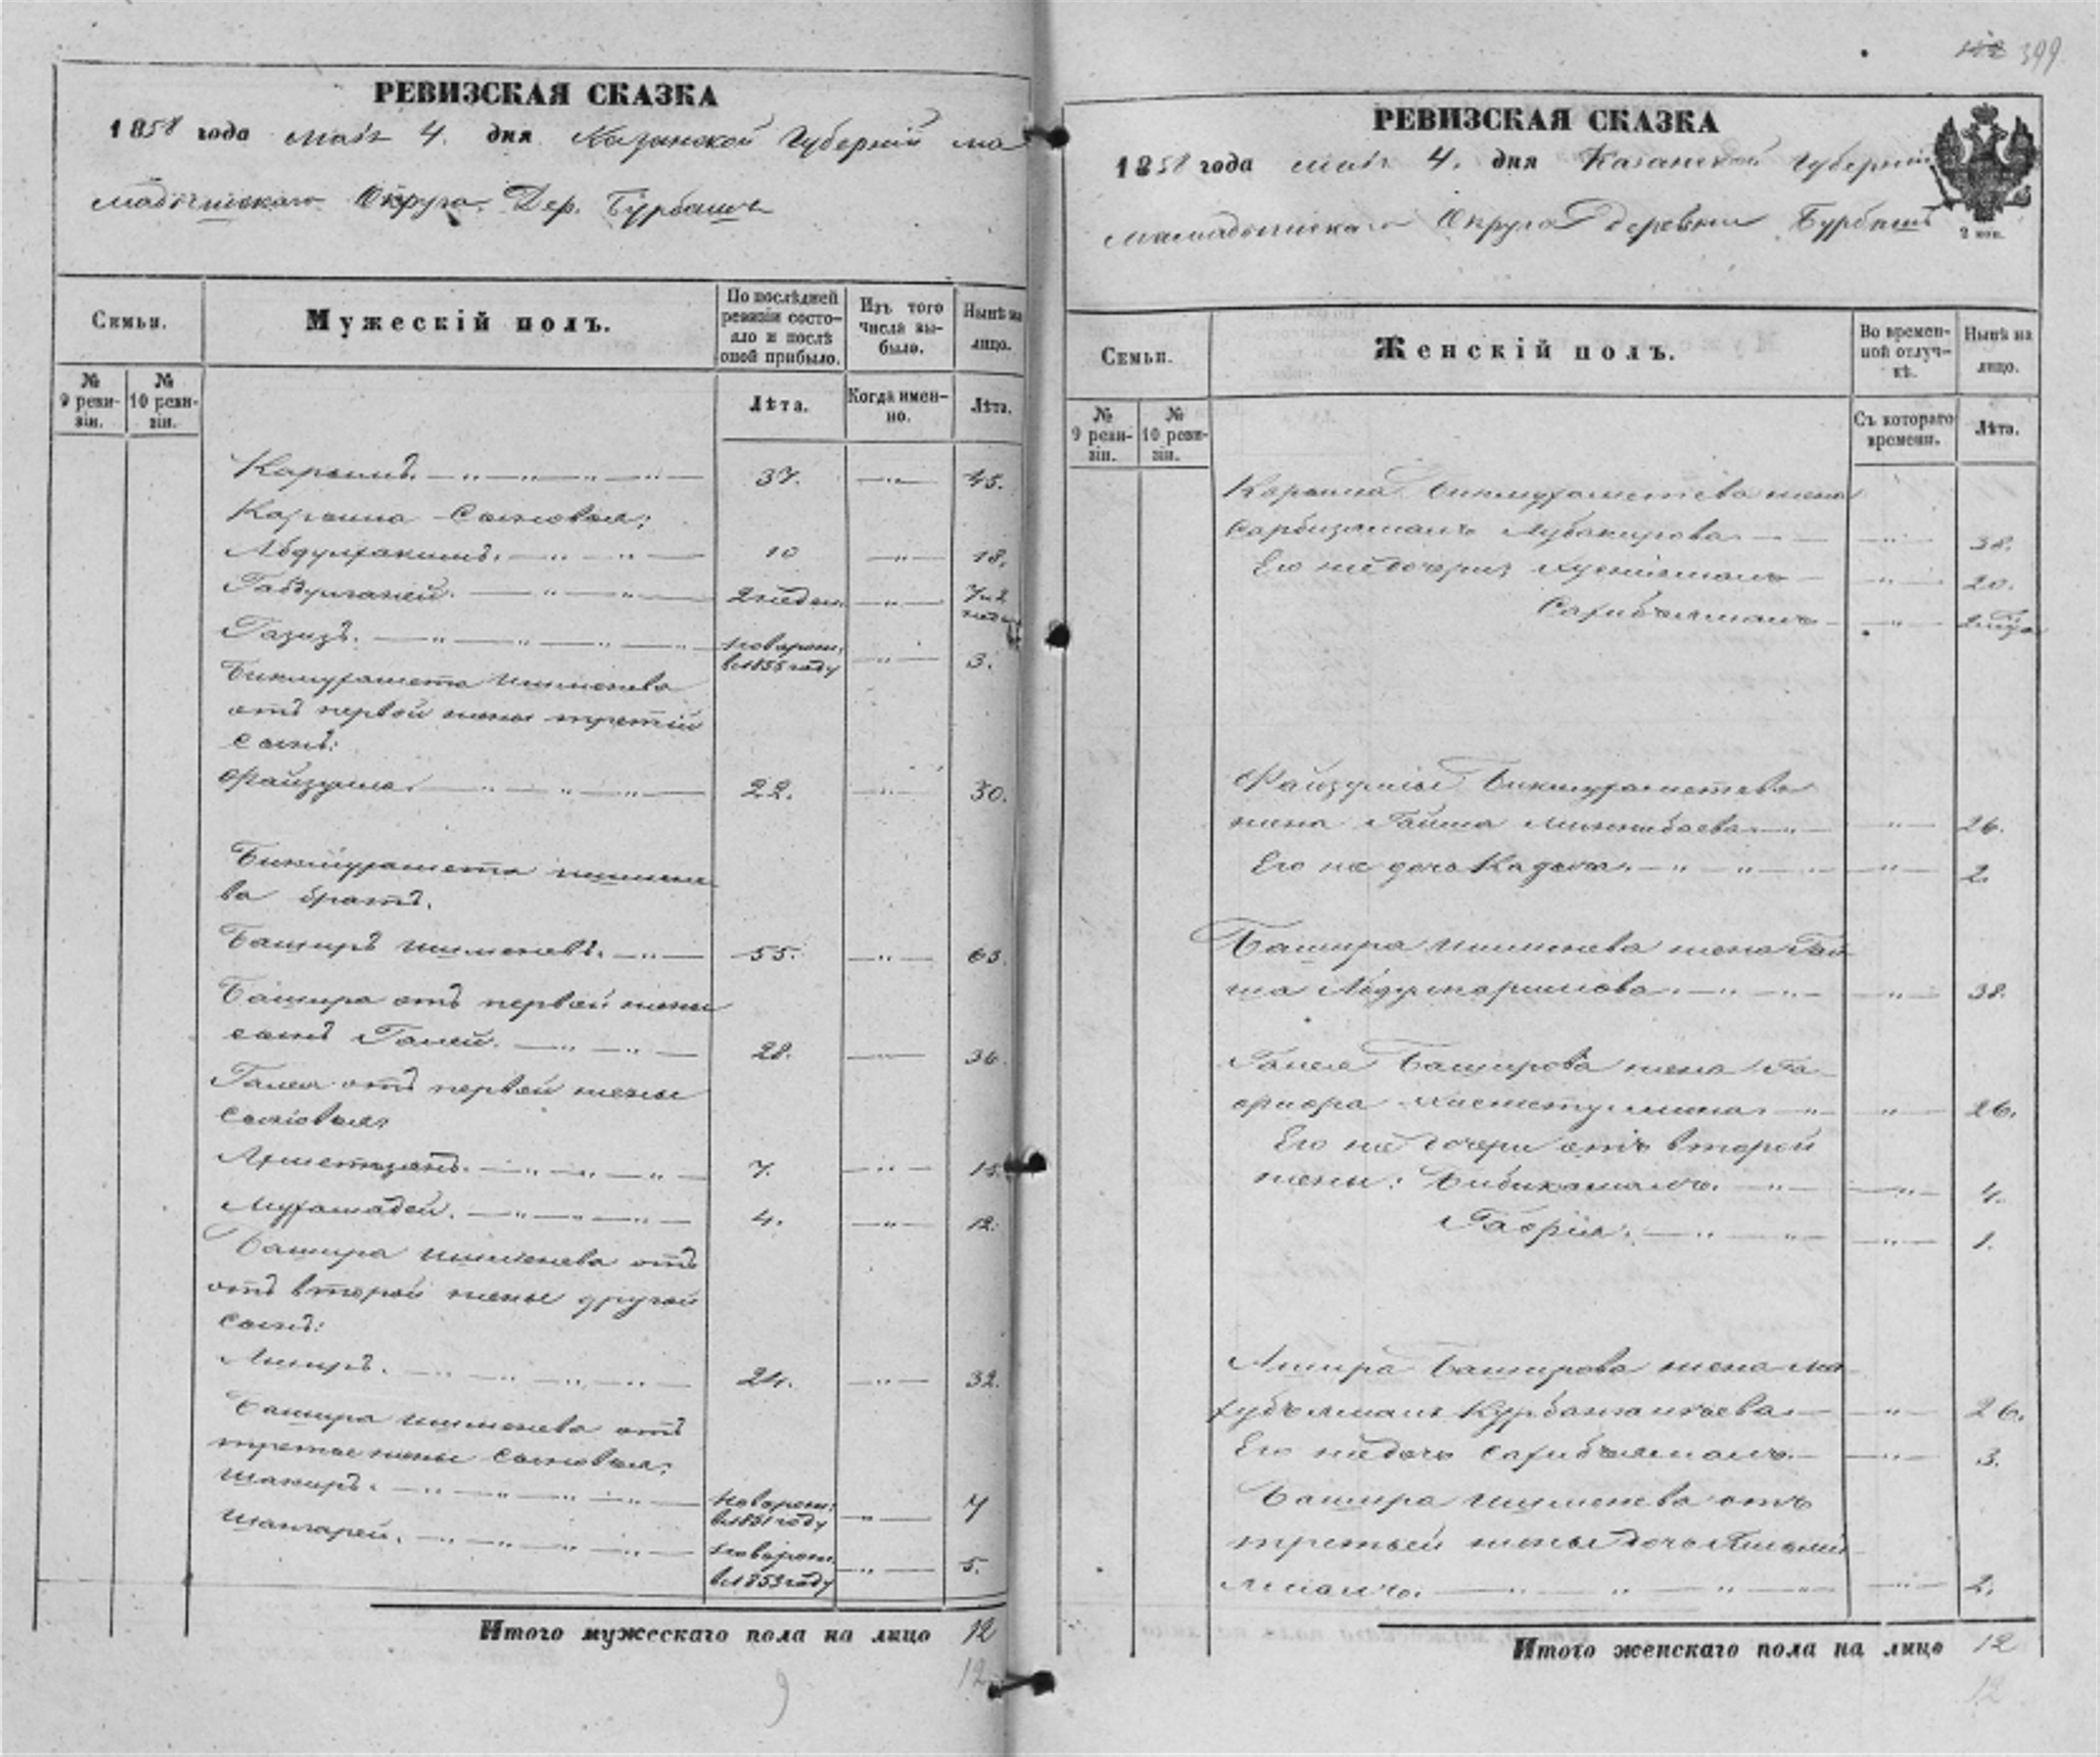 РЕВИЗСКАЯ СКАЗКА
1858 года мая 4. дня Казанской Губернiи ма
мадышскаго Округа Дер. Бурбашъ
Семьи.
Мужескiй полъ.
По послѣдней ревизiи состояло и послѣ оной прибыло.
Изъ того числа выбыло.
Нынѣ на лицо.
№ 9 ревизiи.
№ 10 ревизiи.
Лѣта.
Когда именно.
Лѣта.
Карымъ. 37. 45.
Карыма Сыновья:
Абдулхакимъ. 10 18.
Габдулганей. 2 недел. 7 и 2
Газизъ. новорож: в 1855 году 3.
Бикмухамета Ишменева
отъ первой жены третiй
сынъ:
Файзулла. 22. 30.
Бикмухамета Ишмене
ва братъ.
Баширъ Ишменевъ. 55. 63.
Башира отъ первой жены
сынъ Галей. 28. 36.
Галея отъ первой жены
сыновья:
Ахметзянъ. 7. 15.
Мухамадей. 4. 12.
Башира Ишменева отъ
отъ второй жены другой
сынъ:
Амиръ. 24. 32.
Башира Ишменева отъ
третье жены сыновья:
Шакиръ. новорож: в 1851 году 7
Шангарей. новорож. в 1853 году 5.
Итого мужескаго пола на лицо 12
12
399
РЕВИЗСКАЯ СКАЗКА
1858 года мая 4. дня Казанской Губернiи
мамадышскаго Округа деревни Бурбашъ
2 коп.
Семьи.
Женскiй полъ.
Во временной отлучкѣ.
Нынѣ на лицо.
№ 9 ревизiи.
№ 10 ревизiи.
Съ котораго времени.
Лѣта.
Карыма Бикмухаметева жена
Сарбизямалъ Абубакирова 38.
Его же дочери; 20.
Сахибъямалъ
Файзуллы Бикмухаметева
жена Гайша 26.
Его же дочь Кадыча. 2.
Башира Ишменева жена Гай
ша Абдулкаримова. 38.
Галея Баширова жена Га
26.
Его же дочери отъ второй
жены: Бибикамалъ. 4.
1.
Амира Баширова жена Ма
хубъямалъ 26.
Его же дочь Сахибъямалъ. 3.
Башира Ишменева отъ
третьей жены дочь
2.
Итого женскаго пола на лицо 12
12